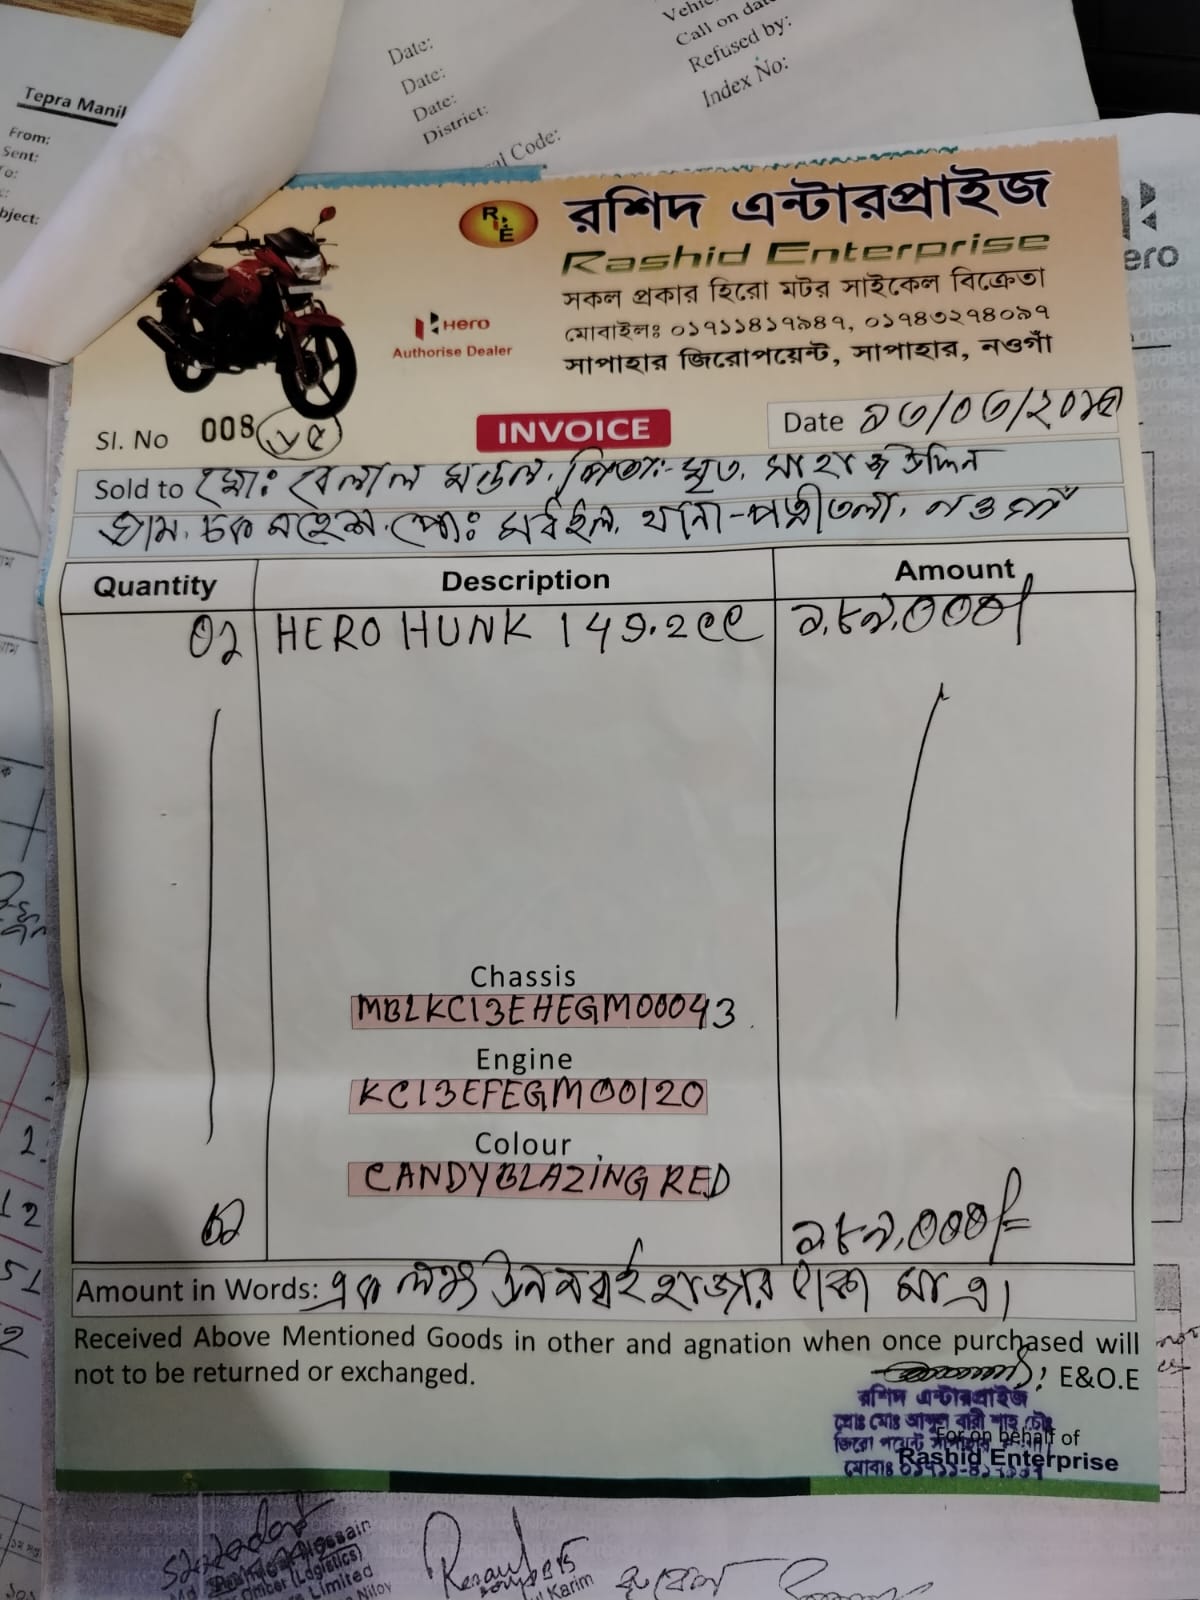 Date:
Date:
Date:
District:
Call on dat
Refused by:
Index No:
al Code:
Tepra Manik
From:
Sent:
To:
bject:
ero
RE
রশিদ এন্টারপ্রাইজ
Rashid Enterprise
সকল প্রকার হিরো মটর সাইকেল বিক্রেতা
মোবাইলঃ ০১৭১১৪১৭৯৪৭, ০১৭৪৩২৭৪০৯৭
সাপাহার জিরোপয়েন্ট, সাপাহার, নওগাঁ
Hero
Authorise Dealer
Sl. No 008
INVOICE
Date
Sold to মোঃ বেলাল মন্ডল, পিতা:- মৃত.
গ্রাম. চক মহেশ. পোঃ থানা-পত্নীতলা. নওগাঁ
Quantity Description Amount
০১ HERO HUNK 149.2cc ১.৮৯.০০০/
Chassis
MBLKC13EHEGM00043
Engine
KC13EFEGM00120
Colour
CANDY BLAZING RED
০১ ১.৮৯.০০০/=
Amount in Words: এক লক্ষ উননব্বই হাজার টাকা মাত্র।
Received Above Mentioned Goods in other and agnation when once purchased will
not to be returned or exchanged.
E&O.E
রশিদ এন্টারপ্রাইজ
For on behalf of
Rashid Enterprise